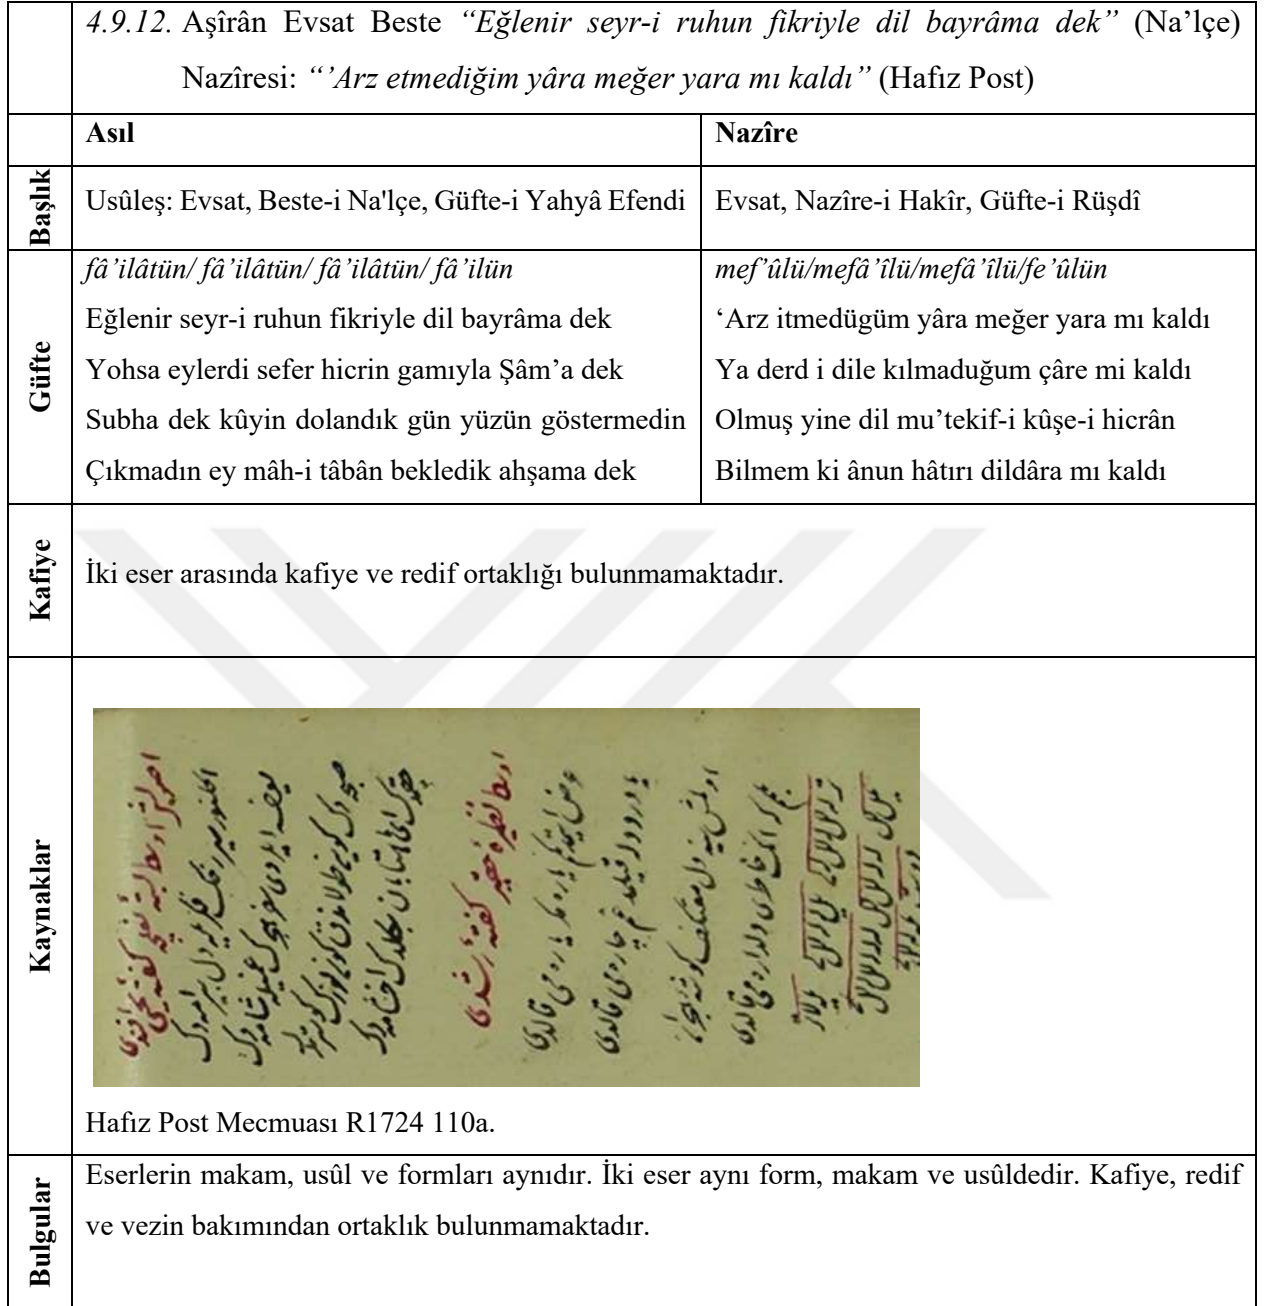 4.9.12. Aşîrân Evsat Beste “Eğlenir seyr-i ruhun fikriyle dil bayrâma dek” (Na’lçe)
Nazîresi: “’Arz etmediğim yâra meğer yara mı kaldı” (Hafız Post)
Asıl
Nazîre
Başlık
Usûleş: Evsat, Beste-i Na'lçe, Güfte-i Yahyâ Efendi
Evsat, Nazîre-i Hakîr, Güfte-i Rüşdî
Güfte
fâ’ilâtün/ fâ’ilâtün/ fâ’ilâtün/ fâ’ilün
Eğlenir seyr-i ruhun fikriyle dil bayrâma dek
Yohsa eylerdi sefer hicrin gamıyla Şâm’a dek
Subha dek kûyin dolandık gün yüzün göstermedin
Çıkmadın ey mâh-i tâbân bekledik ahşama dek
mef’ûlü/mefâ’îlü/mefâ’îlü/fe’ûlün
‘Arz itmedügüm yâra meğer yara mı kaldı
Ya derd i dile kılmaduğum çâre mi kaldı
Olmuş yine dil mu’tekif-i kûşe-i hicrân
Bilmem ki ânun hâtırı dildâra mı kaldı
Kafiye
İki eser arasında kafiye ve redif ortaklığı bulunmamaktadır.
Kaynaklar
Hafız Post Mecmuası R1724 110a.
Bulgular
Eserlerin makam, usûl ve formları aynıdır. İki eser aynı form, makam ve usûldedir. Kafiye, redif
ve vezin bakımından ortaklık bulunmamaktadır.